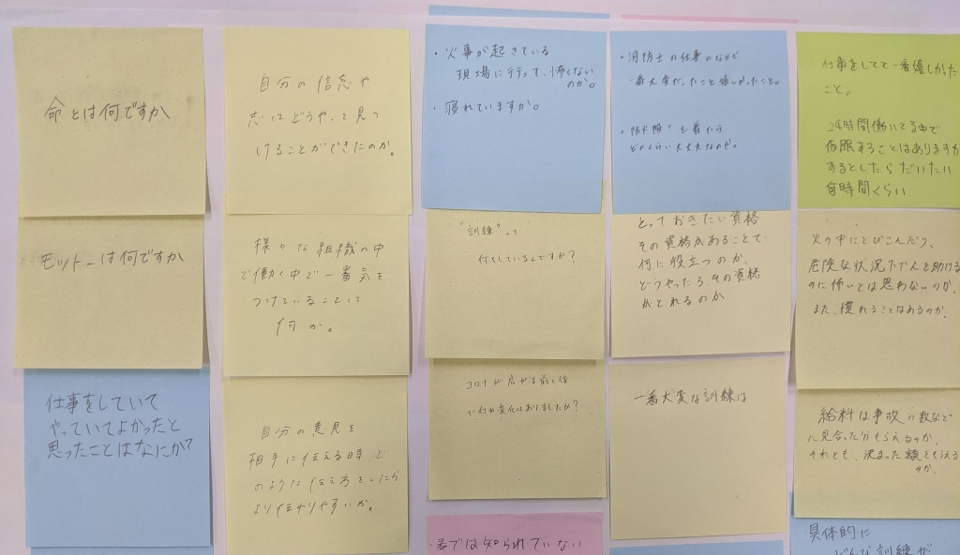 命とは何ですか
モットーは何ですか
仕事をしていて
やっていてよかったと
思ったことはなにか?
自分の信念や
志はどうやって見つ
けることができたのか。
様々な組織の中
で働く中で一番気を
つけていることって
何か。
自分の意見を
相手に伝える時、ど
のような伝え方をしたら
より伝わりやすいか。
・火事が起きている
現場に行って、怖くない
のか。
・寝れていますか。
"訓練"って
何をしているんですか?
コロナが広がる前と後
で何か変化はありましたか?
・表では知られていない
・消防士の仕事のなかで
一番大変だったこと嬉しかったこと。
・防火服を着たら
どのくらい大丈夫なのか。
とっておきたい資格
その資格があることで
何に役立つのか、
どうやったらその資格
がとれるのか
一番大変な訓練は
仕事をしてて一番嬉しかった
こと。
24時間働いてる中で
仮眠することはありますか
するとしたらだいたい
何時間くらい
火の中にとびこんだり、
危険な状況下で人を助ける
のに怖いとは思わないのか。
また、慣れることはあるのか。
給料は事故の数など
に見合った分もらえるのか、
それとも、決まった額をもらえる
のか。
具体的に
どんな訓練が